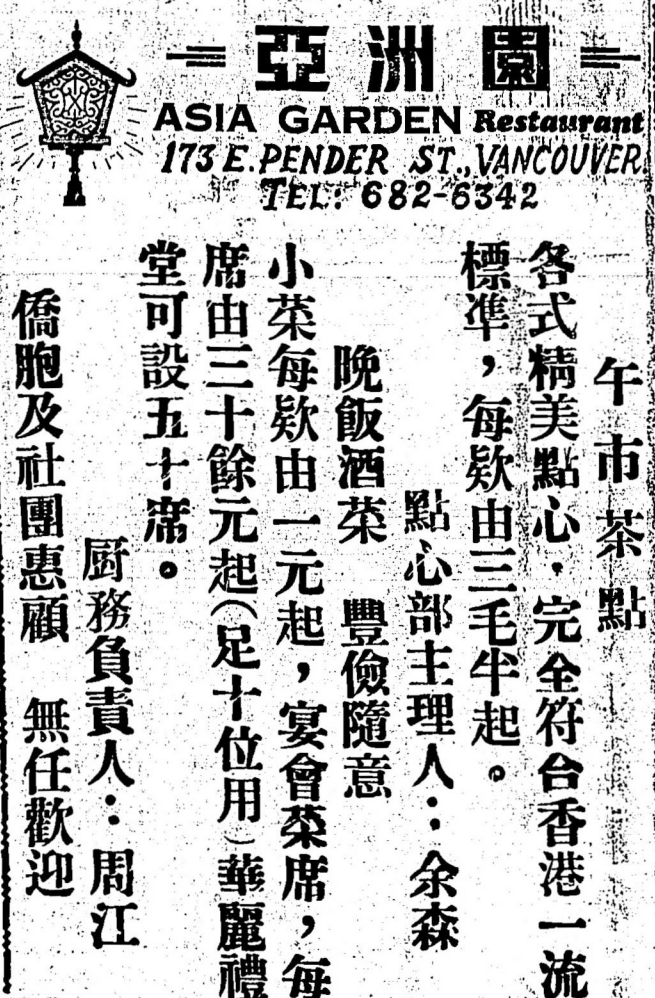 亞洲園
ASIA GARDEN Restaurant
173 E. PENDER ST., VANCOUVER.
TEL: 682-6342
午市茶點
各式精美點心，完全符台香港一流
標準，每欵由三毛半起。
點心部主理人：余森
晚飯酒菜　豐儉隨意
小菜每欵由一元起，宴會菜席，每
席由三十餘元起（足十位用）華麗禮
堂可設五十席。
厨務負責人：周江
僑胞及社團惠顧　無任歡迎